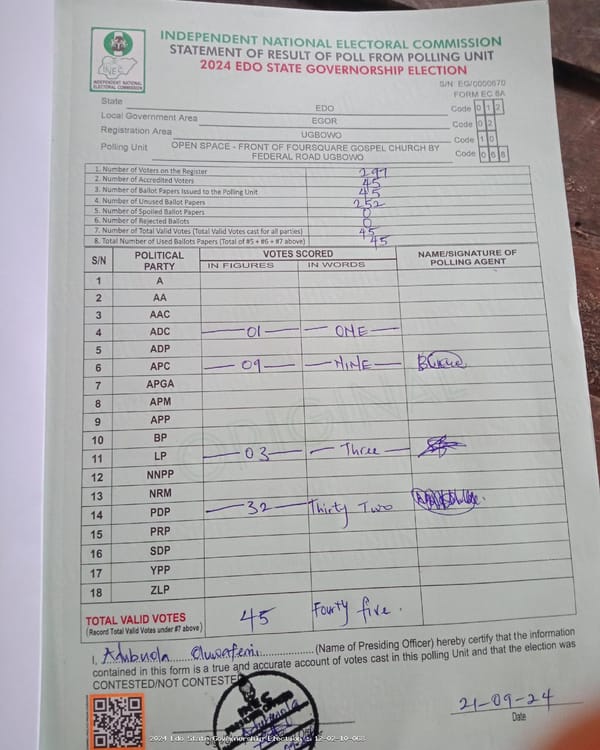 INDEPENDENT NATIONAL ELECTORAL COMMISSION
STATEMENT OF RESULT OF POLL FROM POLLING UNIT
2024 EDO STATE GOVERNORSHIP ELECTION
INEC
INDEPENDENT NATIONAL
ELECTORAL COMMISSION
S/N EG/0000670
FORM EC 8A
State EDO Code 0 1 2
Local Government Area EGOR Code 0 2
Registration Area UGBOWO Code 1 0
Polling Unit OPEN SPACE - FRONT OF FOURSQUARE GOSPEL CHURCH BY Code 0 6 8
FEDERAL ROAD UGBOWO
1. Number of Voters on the Register 297
2. Number of Accredited Voters 45
3. Number of Ballot Papers Issued to the Polling Unit 45
4. Number of Unused Ballot Papers 252
5. Number of Spoiled Ballot Papers 0
6. Number of Rejected Ballots 0
7. Number of Total Valid Votes (Total Valid Votes cast for all parties) 45
8. Total Number of Used Ballots Papers (Total of #5 + #6 + #7 above) 45
S/N POLITICAL PARTY VOTES SCORED NAME/SIGNATURE OF POLLING AGENT
IN FIGURES IN WORDS
1 A
2 AA
3 AAC
4 ADC 01 ONE
5 ADP
6 APC 09 NINE
7 APGA
8 APM
9 APP
10 BP
11 LP 03 Three
12 NNPP
13 NRM
14 PDP 32 Thirty Two
15 PRP
16 SDP
17 YPP
18 ZLP
ORIGINAL
TOTAL VALID VOTES 45 Fourty five.
(Record Total Valid Votes under #7 above)
I, ...... (Name of Presiding Officer) hereby certify that the information
contained in this form is a true and accurate account of votes cast in this polling Unit and that the election was
CONTESTED/NOT CONTESTED
21-09-24
Date
2024 Edo State Governorship Election